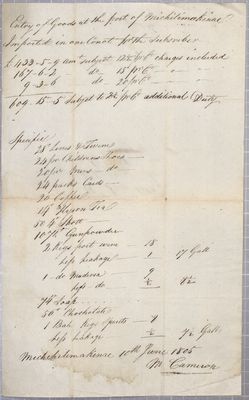 Entry of Goods at the port of Michilimakinac
Imported in one Canoe by the Subscriber
£ 433-5-9 am Subject 12½ p Ct charges included
167-6-2 do 15 p Ct
9-3-6 do 20 p Ct
609-15-5 Subject to 2½ p Ct additional Duty
Specific
28 Lines & Twine
24 pr Childrens Shoes
20 pr Mens do
24 packs Cards
20 Coffee
14 Hyson Tea
504 Shott
107½ Gunpowder
2 Kegs port wine 18
less Leakage 1 17 Gall
1 do Madeira 9
less do ½ 8½
74 Soap
50 Chocholate
1 Keg Spirits
less Leakage ½ 7½ Gall
Michilimakinac 10th June 1805
M. Cameron